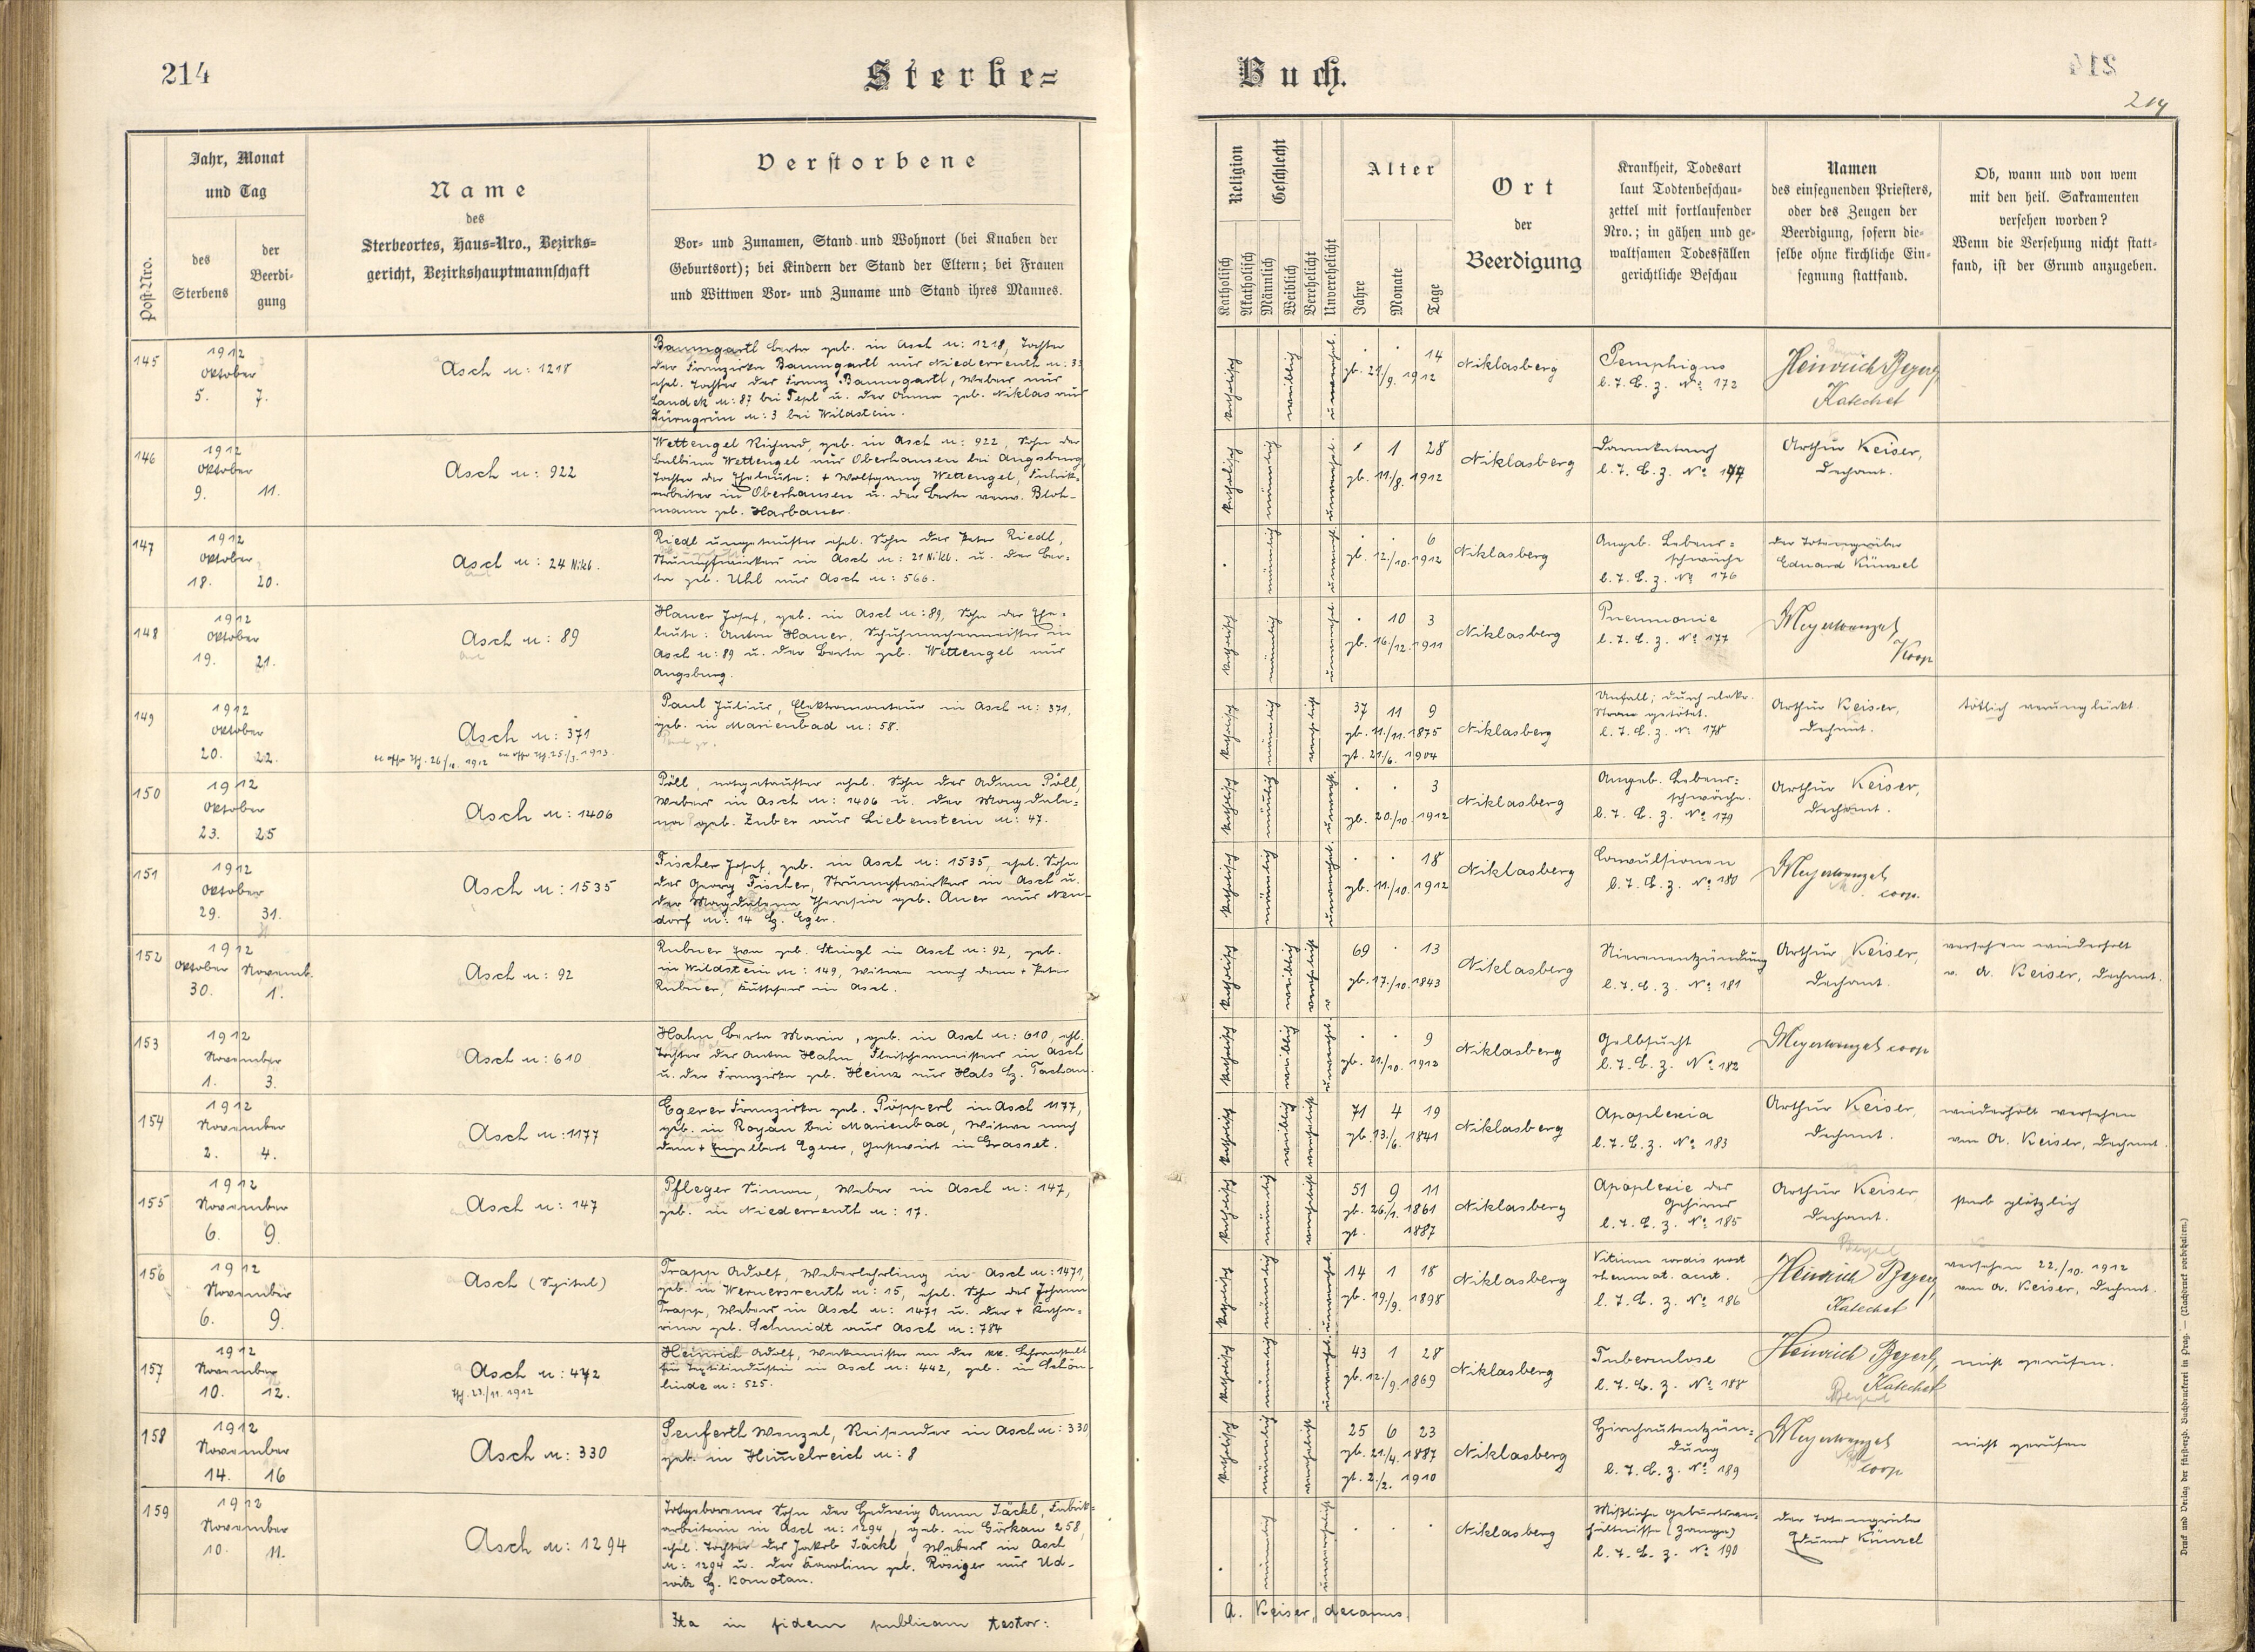 214
Sterbe=
Buch.
214
Post-Nro.
Jahr, Monat
und Tag
des
Sterbens
der
Beerdi-
gung
Name
des
Sterbeortes, Haus-Nro., Bezirks-
gericht, Bezirkshauptmannschaft
Verstorbene
Vor- und Zunamen, Stand und Wohnort (bei Knaben der
Geburtsort); bei Kindern der Stand der Eltern; bei Frauen
und Wittwen Vor- und Zuname und Stand ihres Mannes.
Religion
Katholisch
Akatholisch
Geschlecht
Männlich
Weiblich
Verehelicht
Unverehelicht
Alter
Jahre
Monate
Tage
Ort
der
Beerdigung
Krankheit, Todesart
laut Todtenbeschau-
zettel mit fortlaufender
Nro.; in gähen und ge-
waltsamen Todesfällen
gerichtliche Beschau
Namen
des einsegnenden Priesters,
oder des Zeugen der
Beerdigung, sofern die-
selbe ohne kirchliche Ein-
segnung stattfand.
Ob, wann und von wem
mit den heil. Sakramenten
versehen worden?
Wenn die Versehung nicht statt-
fand, ist der Grund anzugeben.
145
1912
Oktober
5. 7.
Asch n: 1218
Baumgartl Berta geb. in Asch n: 1218, Tochter
der Franziska Baumgartl aus Niederreuth n: 33
ehel. Tochter des Franz Baumgartl, Weber aus
Landek n: 87 bei Tepl u. der Anna geb. Niklas aus
Dürngrün n: 3 bei Wildstein.
katholisch
weiblich
unverehel.
14
gb. 21/9. 1912
Niklasberg
Pemphigus
l. T. B. z. No 172
Heinrich Beyerl,
Katechet
146
1912
Oktober
9. 11.
Asch n: 922
Wettengel Richard, geb. in Asch n: 922, Sohn der
Balbina Wettengel aus Oberhausen bei Augsburg,
Tochter der Eheleute: + Wolfgang Wettengel, Fabrik-
arbeiter in Oberhausen u. der Berta verw. Bloh-
mann geb. Harbauer.
katholisch
männlich
unverehel.
1 28
gb. 11./8. 1912
Niklasberg
Darmkatarrh
l. T. B. z. No
Arthur Keiser,
Dechant.
147
1912
Oktober
18. 20.
Asch n: 24 Nikl.
Riedl ungetaufter ehel. Sohn des Peter Riedl,
Strumpfwirkers in Asch n: 21 Nikl. u. der Ber-
ta geb. Uhl aus Asch n: 566.
männlich
unverehel.
6
gb. 12./10. 1912
Niklasberg
Angeb. Lebens=
schwäche
l. T. B. z. No 176
der Totengräber
Eduard Künzel
148
1912
Oktober
19. 21.
Asch n: 89
Hauer Josef, geb. in Asch n: 89, Sohn der Ehe-
leute: Anton Hauer, Schuhmachermeister in
Asch n: 89 u. der Berta geb. Wettengel aus
Augsburg.
katholisch
männlich
unverehel.
10 3
gb. 16/12. 1911
Niklasberg
Pneumonie
l. T. B. z. No 177
Koop
149
1912
Oktober
20. 22.
Asch n: 371
Paul Julius, Elektromonteur in Asch n: 371,
geb. in Marienbad n: 58.
katholisch
männlich
verehelicht
37 11 9
gb. 11./11. 1875
gt. 21/6. 1904
Niklasberg
Unfall; durch elektr.
Strom getötet.
l. T. B. z. No 178
Arthur Keiser,
Dechant.
tötlich verunglückt.
150
1912
Oktober
23. 25
Asch n: 1406
Pöll, notgetaufter ehel. Sohn des Adam Pöll,
Webers in Asch n: 1406 u. der Magdale-
na geb. Zuber aus Liebenstein n: 47.
katholisch
männlich
unverehel.
3
gb. 20./10. 1912
Niklasberg
Angeb. Lebens=
schwäche.
l. T. B. z. No 179
Arthur Keiser,
Dechant.
151
1912
Oktober
29. 31.
Asch n: 1535
Fischer Josef, geb. in Asch n: 1535, ehel. Sohn
des Georg Fischer, Strumpfwirkers in Asch u.
der Magdalena Theresia geb. Auer aus Neu-
dorf n: 14 Bz. Eger.
katholisch
männlich
unverehel.
18
gb. 11./10. 1912
Niklasberg
Convulsionen
l. T. B. z. No 180
coop.
152
1912
Oktober Novemb.
30. 1.
Asch n: 92
Rubner Eva geb. Stingl in Asch n: 92, geb.
in Wildstein n: 149, Witwe nach dem + Peter
Rubner, Kutscher in Asch.
katholisch
weiblich
verehelicht
69 13
gb. 17./10. 1843
Niklasberg
Nierenentzündung
l. T. B. z. No 181
Arthur Keiser,
Dechant.
versehen wiederholt
v. A. Keiser, Dechant.
153
1912
November
1. 3.
Asch n: 610
Hahn Berta Maria, geb. in Asch n: 610, ehl.
Tochter des Anton Hahn, Fleischermeisters in Asch
u. der Franziska geb. Heinz aus Hals Bz. Tachau.
katholisch
weiblich
unverehel.
9
gb. 21./10. 1912
Niklasberg
Gelbsucht
l. T. B. z. No 182
coop
154
1912
November
2. 4.
Asch n: 1177
Egerer Franziska geb. Pöpperl in Asch 1177,
geb. in Royau bei Marienbad, Witwe nach
dem + Engelbert Egerer, Gastwirt in Grasset.
katholisch
weiblich
verehelicht
71 4 19
gb. 13./6. 1841
Niklasberg
Apoplexia
l. T. B. z. No 183
Arthur Keiser,
Dechant.
wiederholt versehen
von A. Keiser, Dechant.
155
1912
November
6. 9.
Asch n: 147
Pfleger Simon, Weber in Asch n: 147,
geb. in Niederreuth n: 17.
katholisch
männlich
verehelicht
51 9 11
gb. 26/1. 1861
gt. 1887
Niklasberg
Apoplexie des
Gehirns
l. T. B. z. No 185
Arthur Keiser,
Dechant.
starb plötzlich
156
1912
November
6. 9.
Asch (Spital)
Trapp Adolf, Weberlehrling in Asch n: 1471,
geb. in Wernersreuth n: 15, ehel. Sohn des Johann
Trapp, Webers in Asch n: 1471 u. der + Katha-
rina geb. Schmidt aus Asch n: 784
katholisch
männlich
unverehel.
14 1 18
gb. 19./9. 1898
Niklasberg
Vitium cordis post
rheumat. acut.
l. T. B. z. No 186
Heinrich Beyerl,
Katechet
versehen 22./10. 1912
von A. Keiser, Dechant.
157
1912
November
10. 12.
Asch n: 442
23/11. 1912
Heinrich Adolf, Werkmeister an der kk. Lehranstalt
für Textilindustrie in Asch n: 442, geb. in Schön-
linde n: 525.
katholisch
männlich
unverehel.
43 1 28
gb. 12./9. 1869
Niklasberg
Tuberculose
l. T. B. z. No 188
Heinrich Beyerl,
Katechet
nicht gerufen.
158
1912
November
14. 16
Asch n: 330
Seuferth Wenzel, Reisender in Asch n: 330,
geb. in Him̄elreich n: 8
katholisch
männlich
verehelicht
25 6 23
gb. 21/4. 1887
gt. 2./2. 1910
Niklasberg
Hirnhautentzün-
dung
l. T. B. z. No 189
coop
nicht gerufen
159
1912
November
10. 11.
Asch n: 1294
Totgeborener Sohn der Hedwig Anna Jäckl, Fabrik-
arbeiterin in Asch n: 1294, geb. in Görkau 258,
ehel. Tochter des Jakob Jäckl, Webers in Asch
n: 1294 u. der Karolina geb. Rösiger aus Ud-
witz Bz. Komotau.
männlich
unverehelicht
Niklasberg
Mißliche Geburtsver-
hältnisse (Zange)
l. T. B. z. No 190
der Totengräber
Eduard Künzel
Ita in fidem publicam testor:
A. Keiser, decanus.
Druck und Verlag der fürsterzb. Buchdruckerei in Prag. — (Nachdruck vorbehalten.)